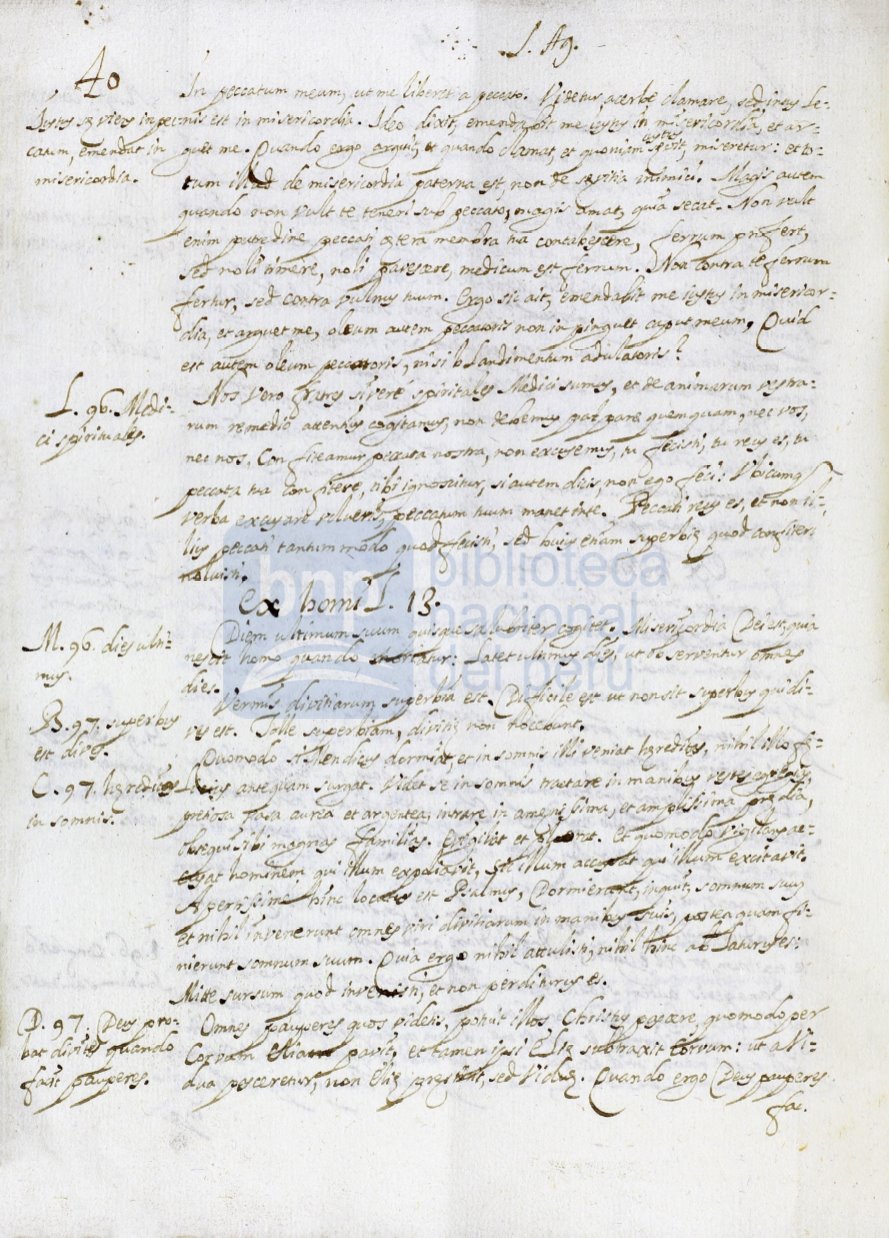 S. Ag.
40
In peccatum meum, ut me liberet a peccato. Videtur acerbe clamare, sed intus le-
nis est in misericordia. Ideo dixit, emendabit me iustus in misericordia, et ar-
Iustus in pec-
catum, emendat in
misericordia.
guet me. Quando ergo arguit, et quando clamat, et quoniam iustus miseretur: et to-
tum illud de misericordia paterna est, non de sęvitia inimici. Magis autem
quando non vult te teneri sub peccato, magis amat, quia secat. Non vult
enim putredine peccati cętera membra tua contabescere, ferrum profert,
sed noli timere, noli pavescere, medicum est ferrum. Non contra te ferrum
fertur, sed contra vulnus tuum. Ergo sic ait, emendabit me iustus in misericor-
dia, et arguet me, oleum autem peccatoris non in pinguet caput meum. Quid
est autem oleum peccatoris, nisi blandimentum adulatoris?
L. 96. Medi-
ci spirituales.
Nos vero fratres si veré spiritales Medici sumus, et de animarum vestra-
rum remedio attentius cogitamus, non debemus parcere quemquam, nec vos,
nec nos. Confiteamur peccata nostra, non excusemus, tu fecisti, tu reus es, tu
peccata tua confitere, tibi ignoscitur, si autem dicis, non ego feci: Ubicumq
verba excusare volueris, peccatum tuum manet in te. Peccati reus es, et non il-
lius peccati tantum modo quod fecisti, sed huius etiam superbię quod confiteri
noluisti.
Ex homi l. 13.
M. 96. dies ulti-
mus.
Diem ultimum suum quisque salubriter cogitet. Misericordia Dei est, quia
nescit homo quando moriatur: Latet ultimus dies, ut observentur omnes
dies.
B. 97. superbus
est dives.
Vermis divitiarum superbia est. Difficile est ut non sit superbus qui di-
ves est. Tolle superbiam, divitię non nocebunt.
C. 97. hęreditas
in somnis.
Quomodo si Mendicus dormiat, et in somnis illi veniat hęreditas, nihil illo fę-
licius antequam surgat. Videt se in somnis tractare in manibus vestes
pretiosa vasa aurea et argentea, intrare in amenissima, et amplissima prędia,
obsequi sibi magnas familias. Evigilet et plorat. Et quomodo vigilans ac-
cusat hominem qui illum expoliavit, sic illum accusat qui illum excitavit.
Apertissime hinc locutus est Psalmus, Dormierunt, inquit, somnum suum
et nihil invenerunt omnes viri divitiarum in manibus suis, postea quam fi-
nierunt somnum suum. Quia ergo nihil attulisti, nihil hinc ablaturus es:
Mitte sursum quod invenisti, et non perditurus es.
D. 97. Deus pro-
bat divites quando
facit pauperes.
Omnes pauperes quos videtis, potuit illos Christus pascere, quomodo per
Corvum Eliam pavit, et tamen ipsi Elię subtraxit Corvum: ut a Vi-
dua pasceretur, non Elię pręstitit, sed Viduę. Quando ergo Deus pauperes
fac.
bnp biblioteca
nacional
del perú